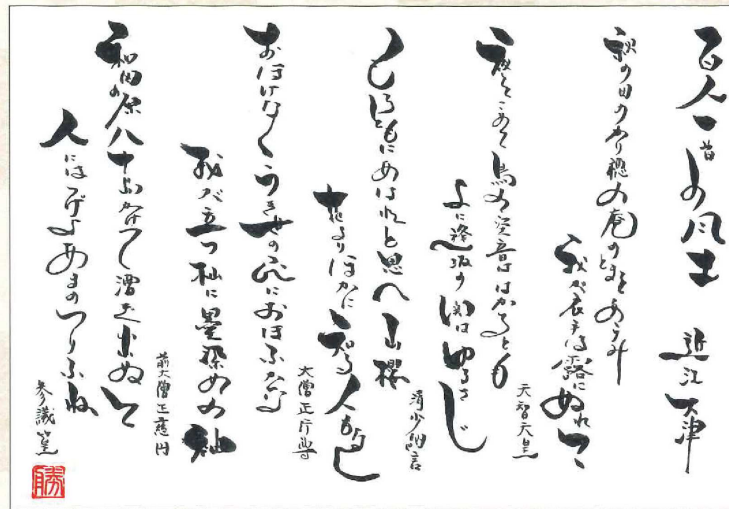 百人一首の風土　近江　大津
秋の田のかり穂の庵のとまをあらみ
我が衣手は露にぬれつつ
天智天皇
夜をこめて鳥の空音ははかるとも
よに逢坂の関はゆるさじ
清少納言
もろともにあはれと思へ山櫻
花よりほかに知る人もなし
大僧正行尊
おほけなくうき世の民におほふかな
我が立つ杣に墨染めの袖
前大僧正慈円
和田の原八十島かけて漕ぎ出ぬと
人にはつげよあまのつりふね
参議篁
勝